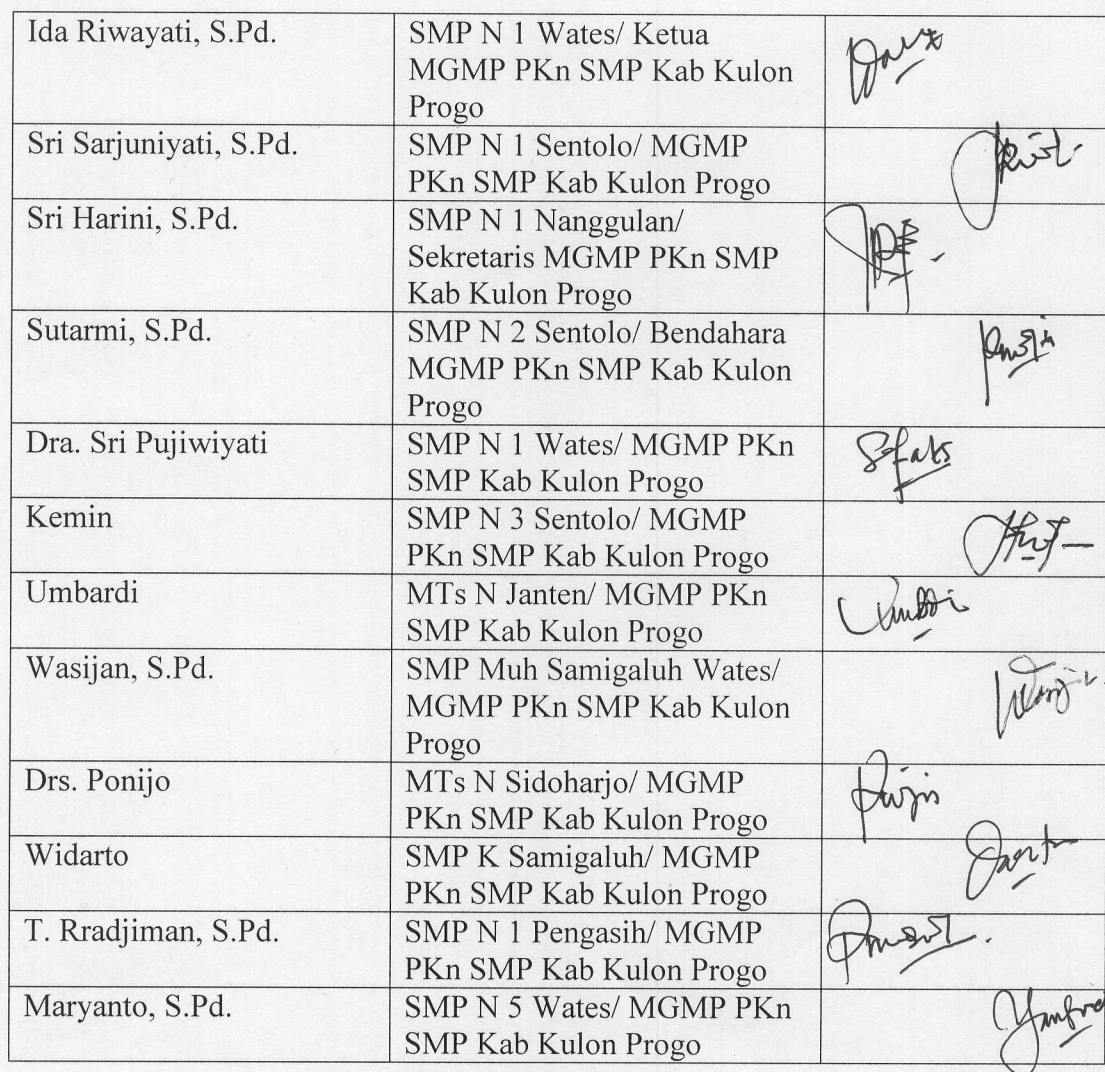 Ida Riwayati, S.Pd.
SMP N 1 Wates/ Ketua
MGMP PKn SMP Kab Kulon
Progo
Sri Sarjuniyati, S.Pd.
SMP N 1 Sentolo/ MGMP
PKn SMP Kab Kulon Progo
Sri Harini, S.Pd.
SMP N 1 Nanggulan/
Sekretaris MGMP PKn SMP
Kab Kulon Progo
Sutarmi, S.Pd.
SMP N 2 Sentolo/ Bendahara
MGMP PKn SMP Kab Kulon
Progo
Dra. Sri Pujiwiyati
SMP N 1 Wates/ MGMP PKn
SMP Kab Kulon Progo
Kemin
SMP N 3 Sentolo/ MGMP
PKn SMP Kab Kulon Progo
Umbardi
MTs N Janten/ MGMP PKn
SMP Kab Kulon Progo
Wasijan, S.Pd.
SMP Muh Samigaluh Wates/
MGMP PKn SMP Kab Kulon
Progo
Drs. Ponijo
MTs N Sidoharjo/ MGMP
PKn SMP Kab Kulon Progo
Widarto
SMP K Samigaluh/ MGMP
PKn SMP Kab Kulon Progo
T. Rradjiman, S.Pd.
SMP N 1 Pengasih/ MGMP
PKn SMP Kab Kulon Progo
Maryanto, S.Pd.
SMP N 5 Wates/ MGMP PKn
SMP Kab Kulon Progo